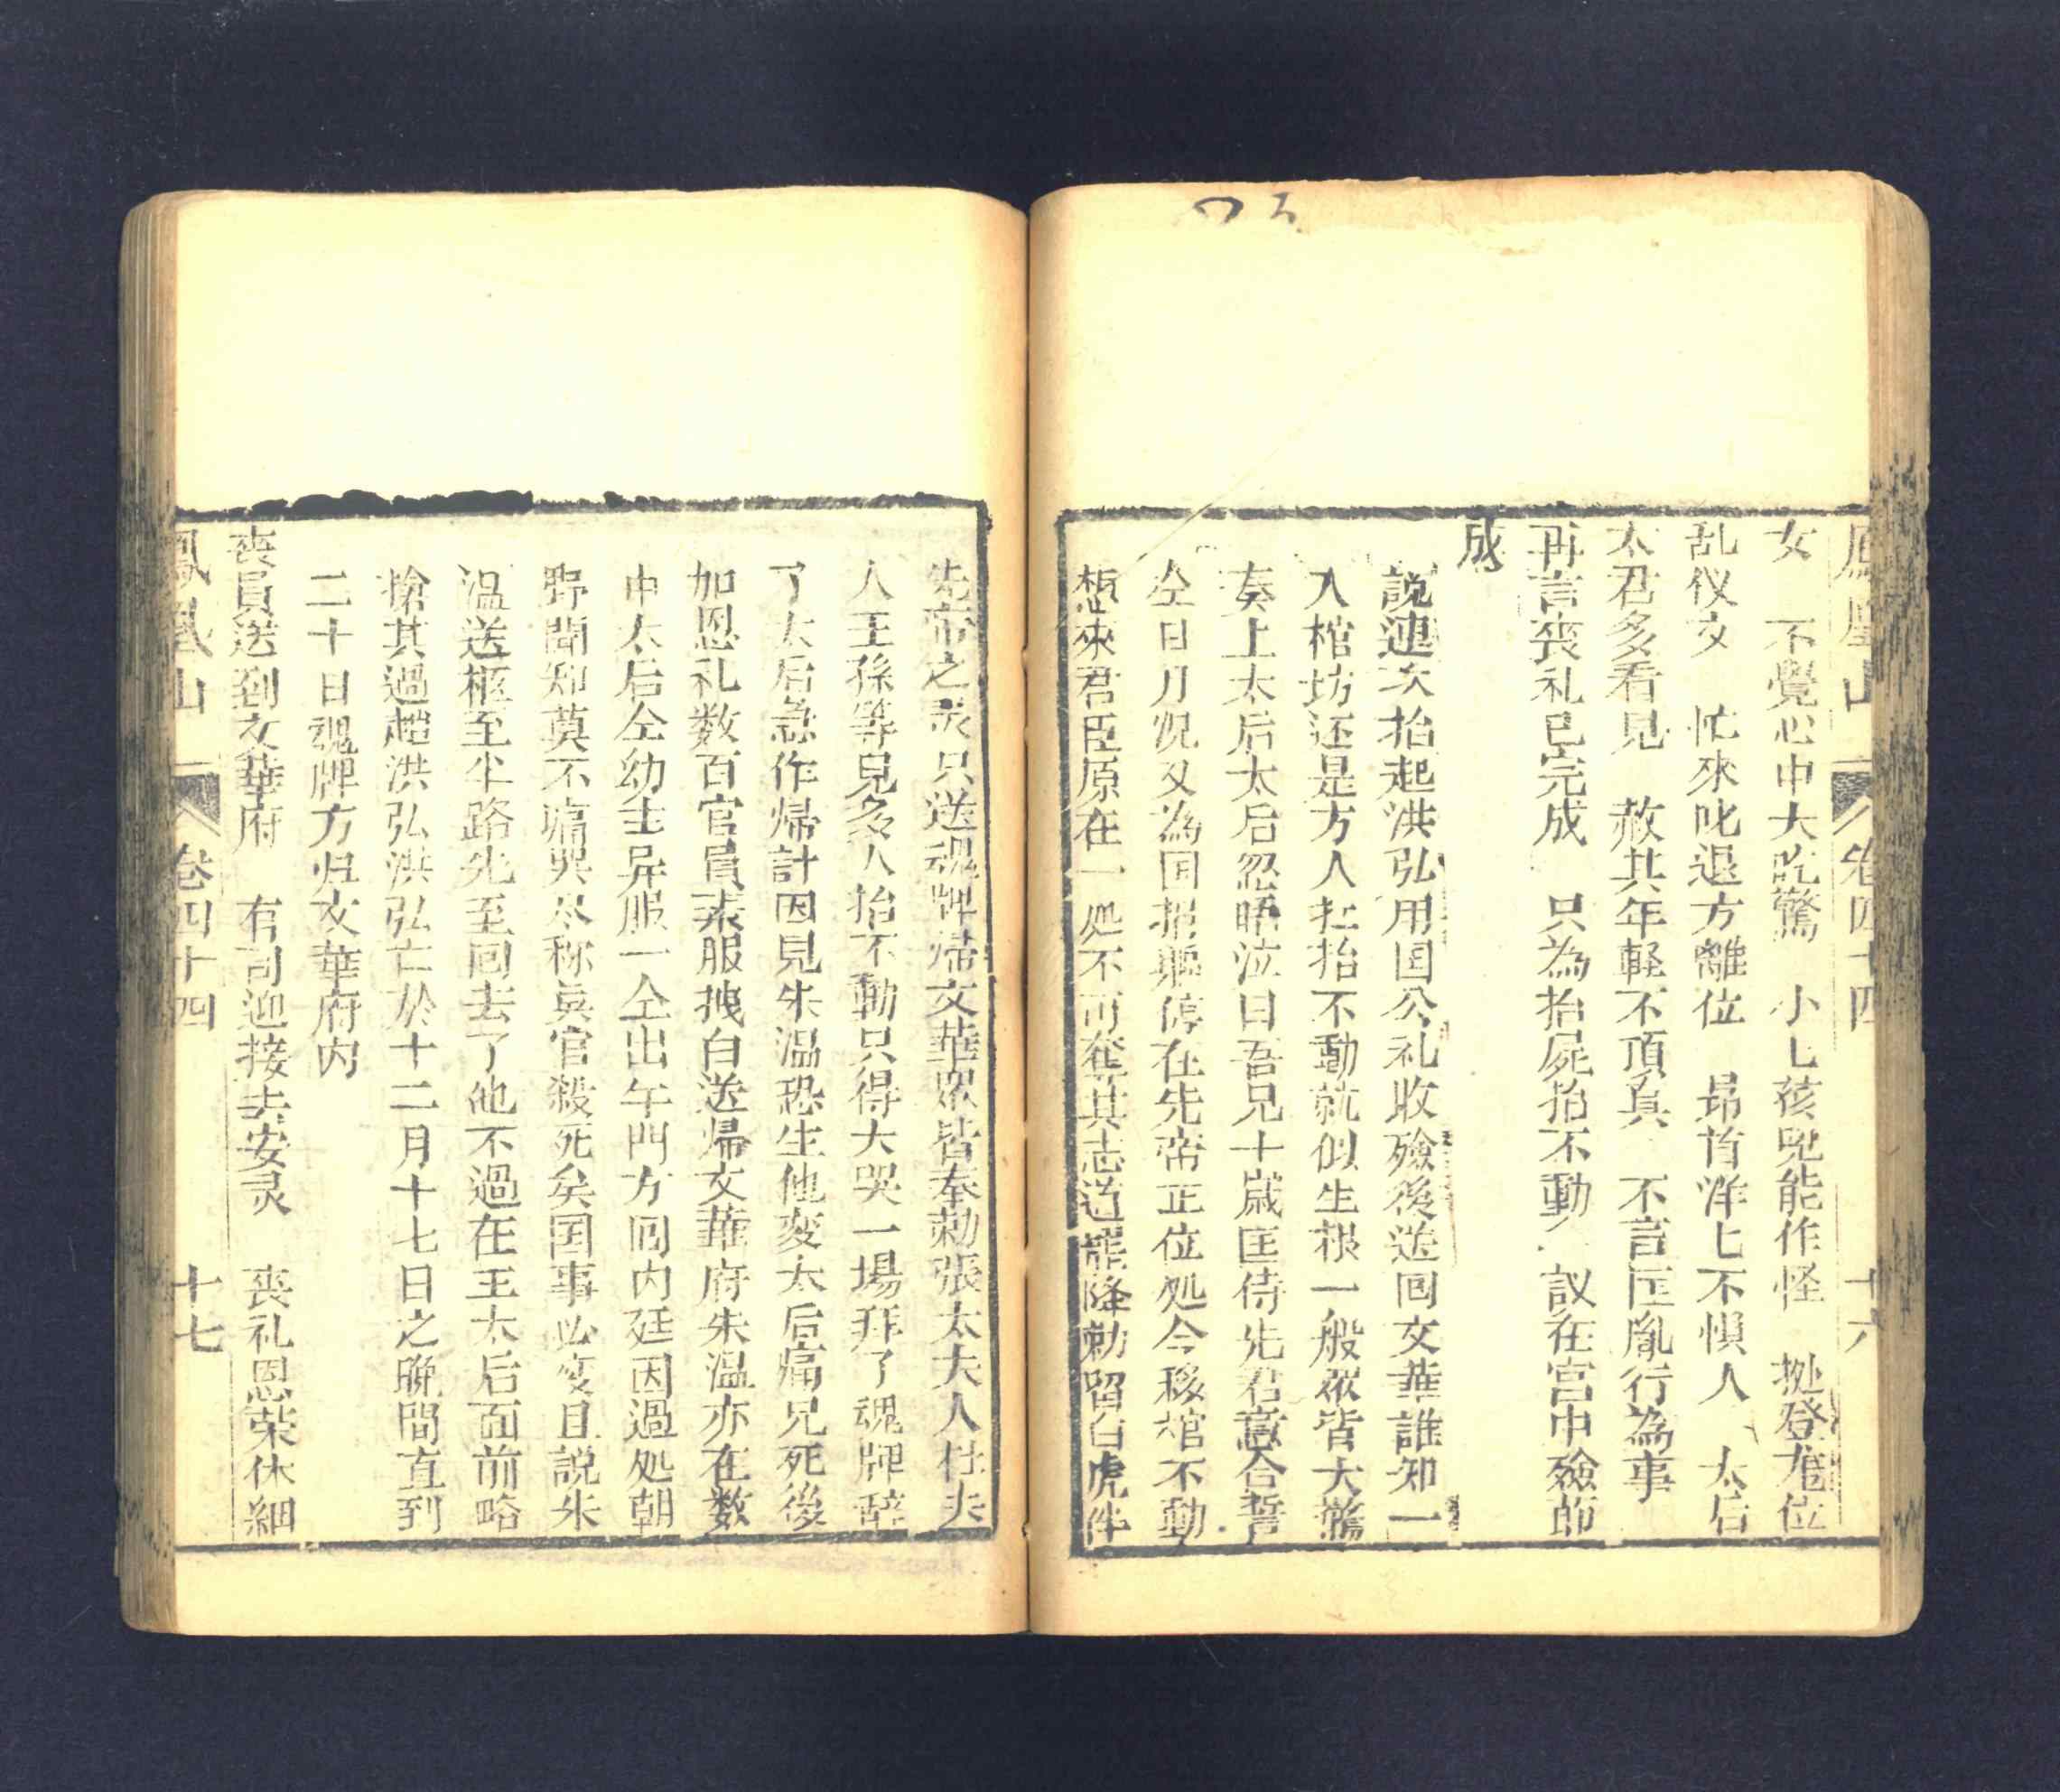 鳳凰山 卷四十四 十六
女 不覺心中大吃驚 小匕孩児能作怪 拠登龙位
乱仪文 忙來叱退方離位 昻首洋匕不惧人 太后
太君多看見 赦其年軽不頂真 不言匡胤行為事
再言丧礼已完成 只為抬屍抬不動 議在宮中殮節
成
説連次抬起洪弘用国公礼收殮後送回文華誰知一
入棺坊还是方人扛抬不動就似生根一般眾皆大驚
奏上太后太后忽晤泣曰吾兄十嵗匡侍先君意合誓
仝日月况又為国捐軀停在先帝正位処今移棺不動
想來君臣原在一処不可奪其志遂擺降勅留白虎件
先帝之灵只送魂牌歸文華眾皆奉勅張太夫人杜夫
人王孫等見多人抬不動只得大哭一場拜了魂牌辞
了太后急作帰計因見朱温恐生他変太后痛兄死後
加恩礼数百官員素服拽白送帰文華府朱温亦在数
中太后仝幼主异服一仝出午門方囬内廷因過処朝
野聞知莫不痛哭尽称眞官殺死矣国事必变且説朱
温送柩至半路先至回去了他不過在王太后面前略
搶其過趙洪弘洪弘亡於十二月十七日之晚間直到
二十日魂牌方归文華府内
丧員送到文華府 有司迎接去安灵 丧礼恩荣休細
鳳凰山 卷四十四 十七